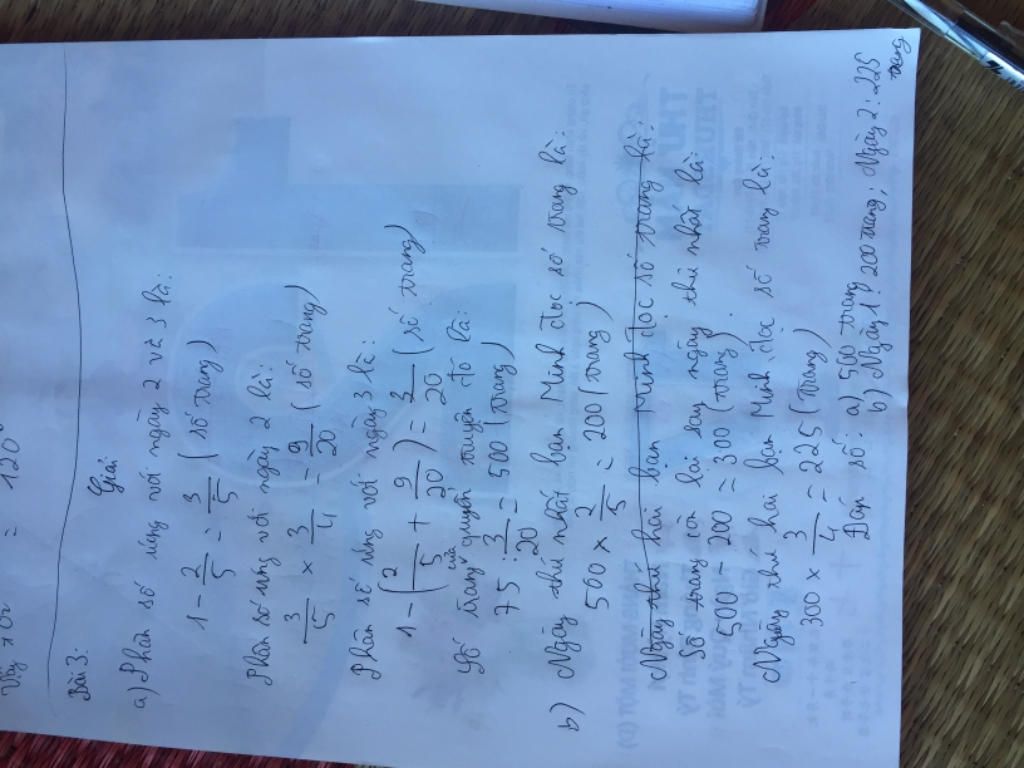 Vậy xOz = 120°
Bài 3:
Giải
a) Phân số ứng với ngày 2 và 3 là:
1 - 2/5 = 3/5 (số trang)
Phân số ứng với ngày 2 là:
3/5 × 3/4 = 9/20 (số trang)
Phân số ứng với ngày 3 là:
1 - (2/5 + 9/20) = 3/20 (số trang)
Số trang của quyển truyện đó là:
75 : 3/20 = 500 (trang)
b) Ngày thứ nhất bạn Minh đọc số trang là:
500 × 2/5 = 200 (trang)
Ngày thứ hai bạn Minh đọc số trang là:
Số trang còn lại sau ngày thứ nhất là:
500 - 200 = 300 (trang)
Ngày thứ hai bạn Minh đọc số trang là:
300 × 3/4 = 225 (trang)
Đáp số: a) 500 trang
b) Ngày 1: 200 trang; Ngày 2: 225
trang